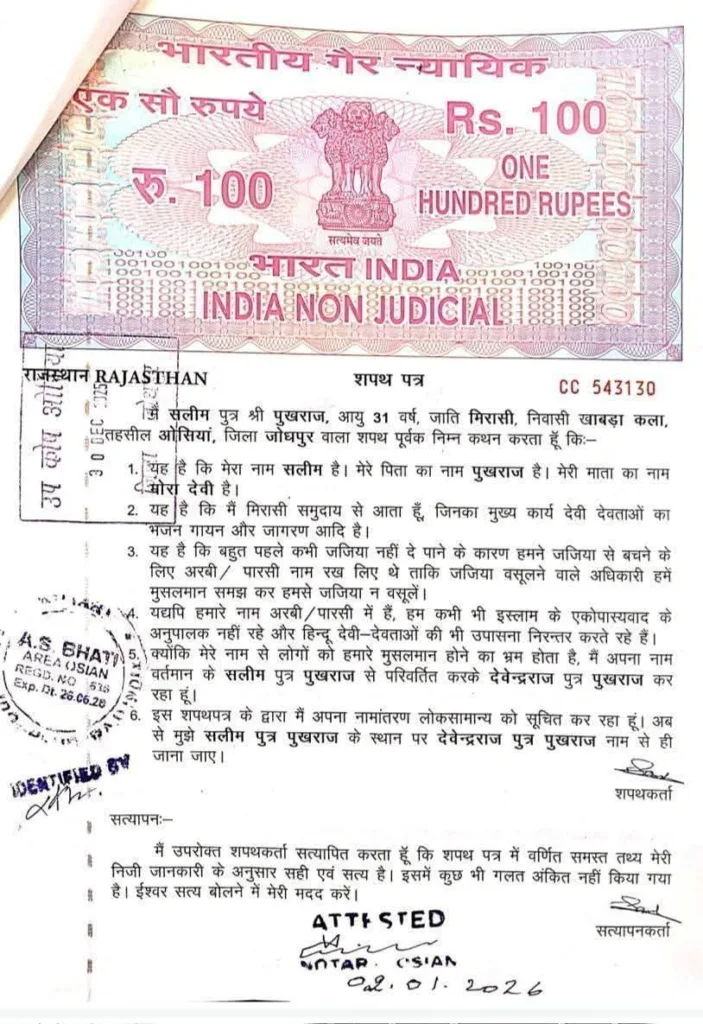 भारतीय गैर न्यायिक
एक सौ रुपये
Rs. 100
रु. 100
ONE
HUNDRED RUPEES
सत्यमेव जयते
भारत INDIA
INDIA NON JUDICIAL
राजस्थान RAJASTHAN
शपथ पत्र
CC 543130
उप कोष
30 DEC 2025
मैं सलीम पुत्र श्री पुखराज, आयु 31 वर्ष, जाति मिरासी, निवासी खाबड़ा कला,
तहसील ओसियां, जिला जोधपुर वाला शपथ पूर्वक निम्न कथन करता हूँ कि:–
1. यह है कि मेरा नाम सलीम है। मेरे पिता का नाम पुखराज है। मेरी माता का नाम
देवी है।
2. यह है कि मैं मिरासी समुदाय से आता हूँ, जिनका मुख्य कार्य देवी देवताओं का
भजन गायन और जागरण आदि है।
3. यह है कि बहुत पहले कभी जजिया नहीं दे पाने के कारण हमने जजिया से बचने के
लिए अरबी/ पारसी नाम रख लिए थे ताकि जजिया वसूलने वाले अधिकारी हमें
मुसलमान समझ कर हमसे जजिया न वसूलें।
4. यद्यपि हमारे नाम अरबी/पारसी में हैं, हम कभी भी इस्लाम के एकोपास्यवाद के
अनुपालक नहीं रहे और हिन्दू देवी–देवताओं की भी उपासना निरन्तर करते रहे हैं।
5. क्योंकि मेरे नाम से लोगों को हमारे मुसलमान होने का भ्रम होता है, मैं अपना नाम
वर्तमान के सलीम पुत्र पुखराज से परिवर्तित करके देवेन्द्रराज पुत्र पुखराज कर
रहा हूं।
6. इस शपथपत्र के द्वारा मैं अपना नामांतरण लोकसामान्य को सूचित कर रहा हूं। अब
से मुझे सलीम पुत्र पुखराज के स्थान पर देवेन्द्रराज पुत्र पुखराज नाम से ही
जाना जाए।
A.S. BHATI
AREA OSIAN
REGD. NO
Exp. Dt. 26.06.28
IDENTIFIED BY
शपथकर्ता
सत्यापन:–
मैं उपरोक्त शपथकर्ता सत्यापित करता हूँ कि शपथ पत्र में वर्णित समस्त तथ्य मेरी
निजी जानकारी के अनुसार सही एवं सत्य है। इसमें कुछ भी गलत अंकित नहीं किया गया
है। ईश्वर सत्य बोलने में मेरी मदद करें।
सत्यापनकर्ता
ATTESTED
NOTARY OSIAN
02.01.2026